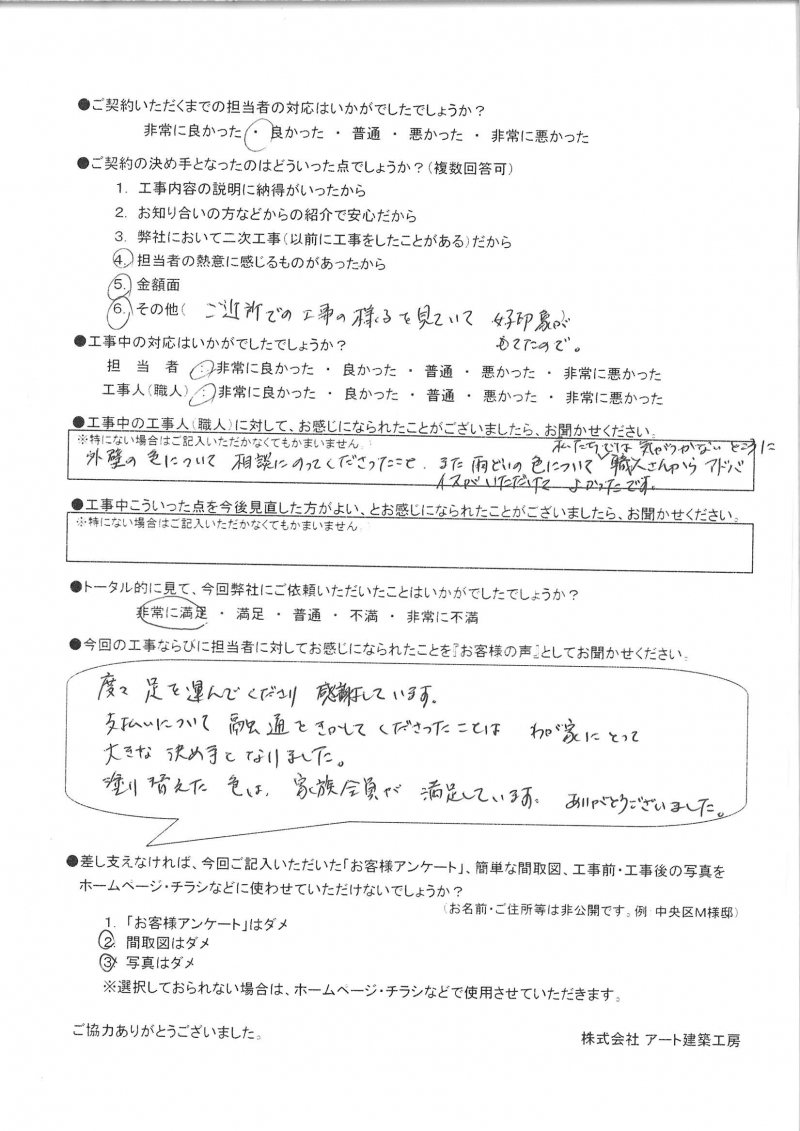 ●ご契約いただくまでの担当者の対応はいかがでしたでしょうか？
非常に良かった ・ 良かった ・ 普通 ・ 悪かった ・ 非常に悪かった
●ご契約の決め手となったのはどういった点でしょうか？（複数回答可）
1. 工事内容の説明に納得がいったから
2. お知り合いの方などからの紹介で安心だから
3. 弊社において二次工事（以前に工事をしたことがある）だから
4. 担当者の熱意に感じるものがあったから
5. 金額面
6. その他（ ご近所での工事の様子を見ていて 好印象が
もてたので。
●工事中の対応はいかがでしたでしょうか？
担 当 者 ：非常に良かった ・ 良かった ・ 普通 ・ 悪かった ・ 非常に悪かった
工事人（職人）：非常に良かった ・ 良かった ・ 普通 ・ 悪かった ・ 非常に悪かった
●工事中の工事人（職人）に対して、お感じになられたことがございましたら、お聞かせください。
※特にない場合はご記入いただかなくてもかまいません。
私たちでは気がつかない ところに
外壁の色について 相談にのってくださったこと、また 雨どいの色について 職人さんから アドバ
イスがいただけて よかったです。
●工事中こういった点を今後見直した方がよい、とお感じになられたことがございましたら、お聞かせください。
※特にない場合はご記入いただかなくてもかまいません。
●トータル的に見て、今回弊社にご依頼いただいたことはいかがでしたでしょうか？
非常に満足 ・ 満足 ・ 普通 ・ 不満 ・ 非常に不満
●今回の工事ならびに担当者に対してお感じになられたことを『お客様の声』としてお聞かせください。
度々 足を運んでくださり 感謝しています。
支払いについて 融通をきかして くださったことは わが家にとって
大きな 決め手と なりました。
塗り替えた 色は、家族全員が 満足しています。 ありがとうございました。
●差し支えなければ、今回ご記入いただいた「お客様アンケート」、簡単な間取図、工事前・工事後の写真を
ホームページ・チラシなどに使わせていただけないでしょうか？
（お名前・ご住所等は非公開です。例 中央区M様邸）
1. 「お客様アンケート」はダメ
2. 間取図はダメ
3. 写真はダメ
※選択しておられない場合は、ホームページ・チラシなどで使用させていただきます。
ご協力ありがとうございました。
株式会社 アート建築工房